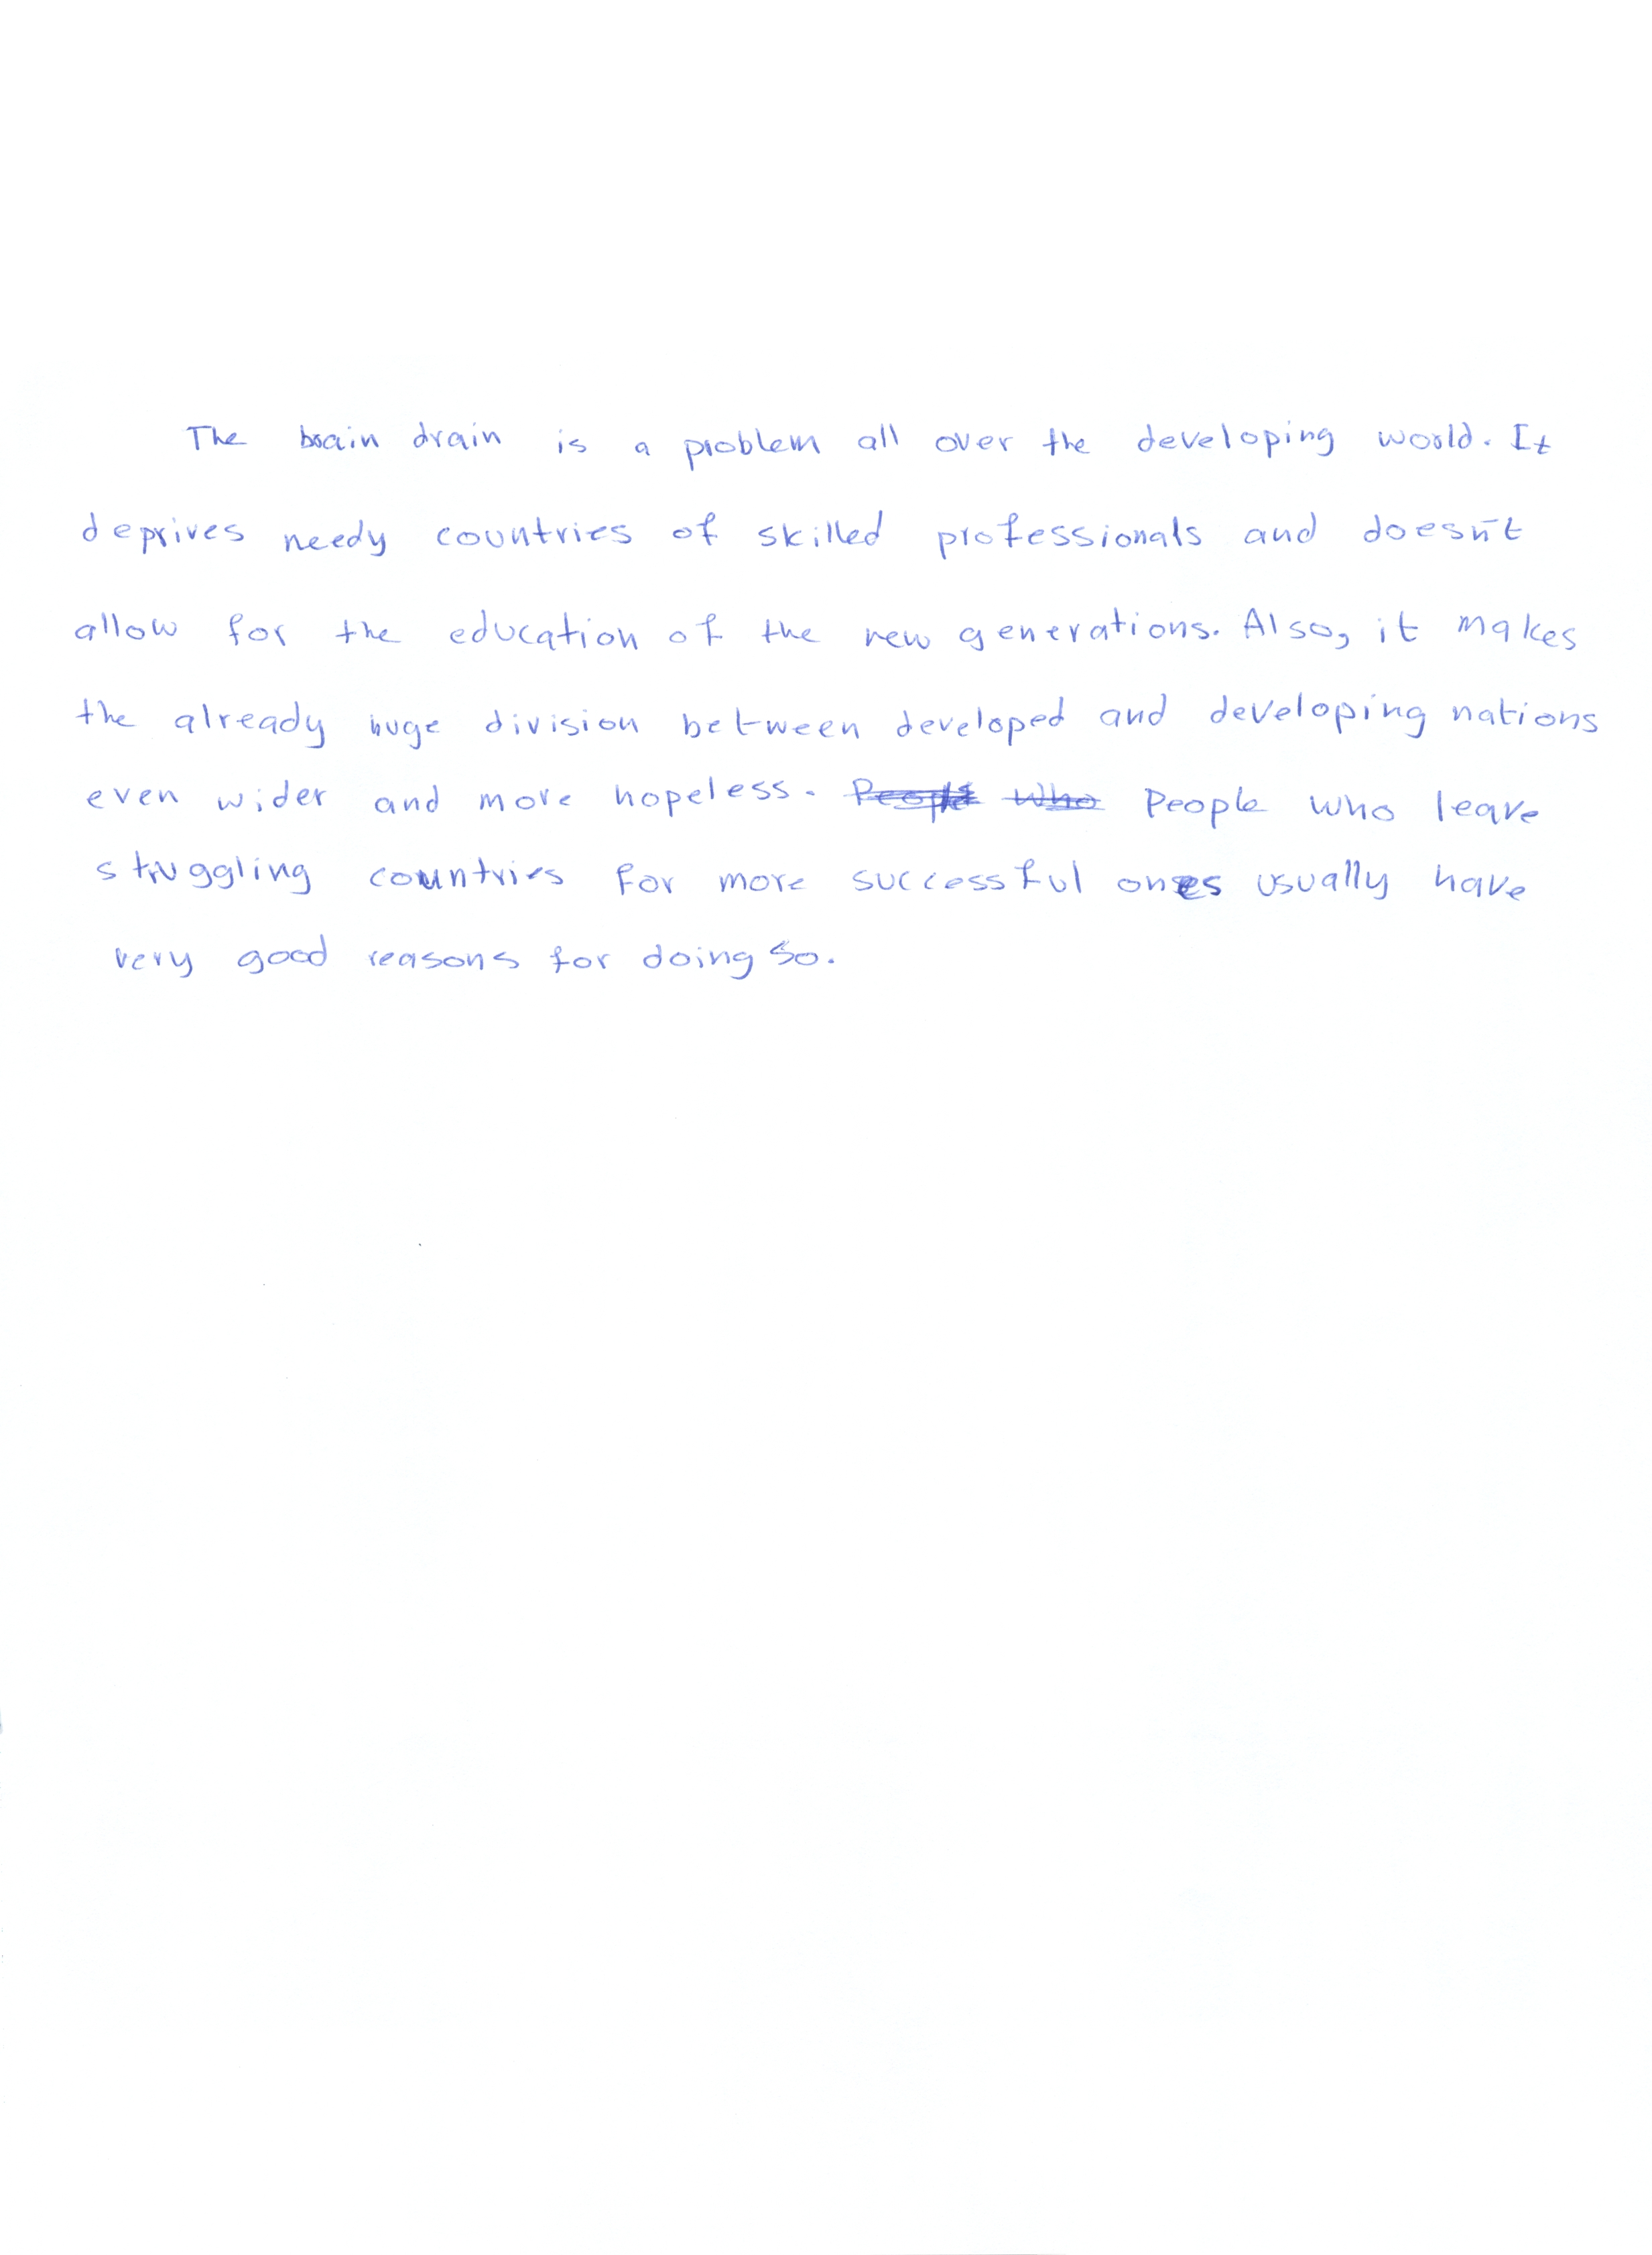 The brain drain is a problem all over the developing world. It
deprives needy countries of skilled professionals and doesn't
allow for the education of the new generations. Also, it makes
the already huge division between developed and developing nations
even wider and more hopeless. People who People who leave
struggling countries for more successful ones usually have
very good reasons for doing so.